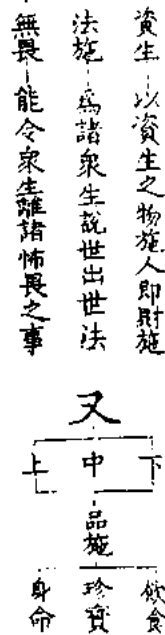 資生－以資生之物施人即財施
法施－為諸衆生說世出世法
無畏－能令衆生離諸怖畏之事
又
下 中 上
品施
飲食 珍寶 身命